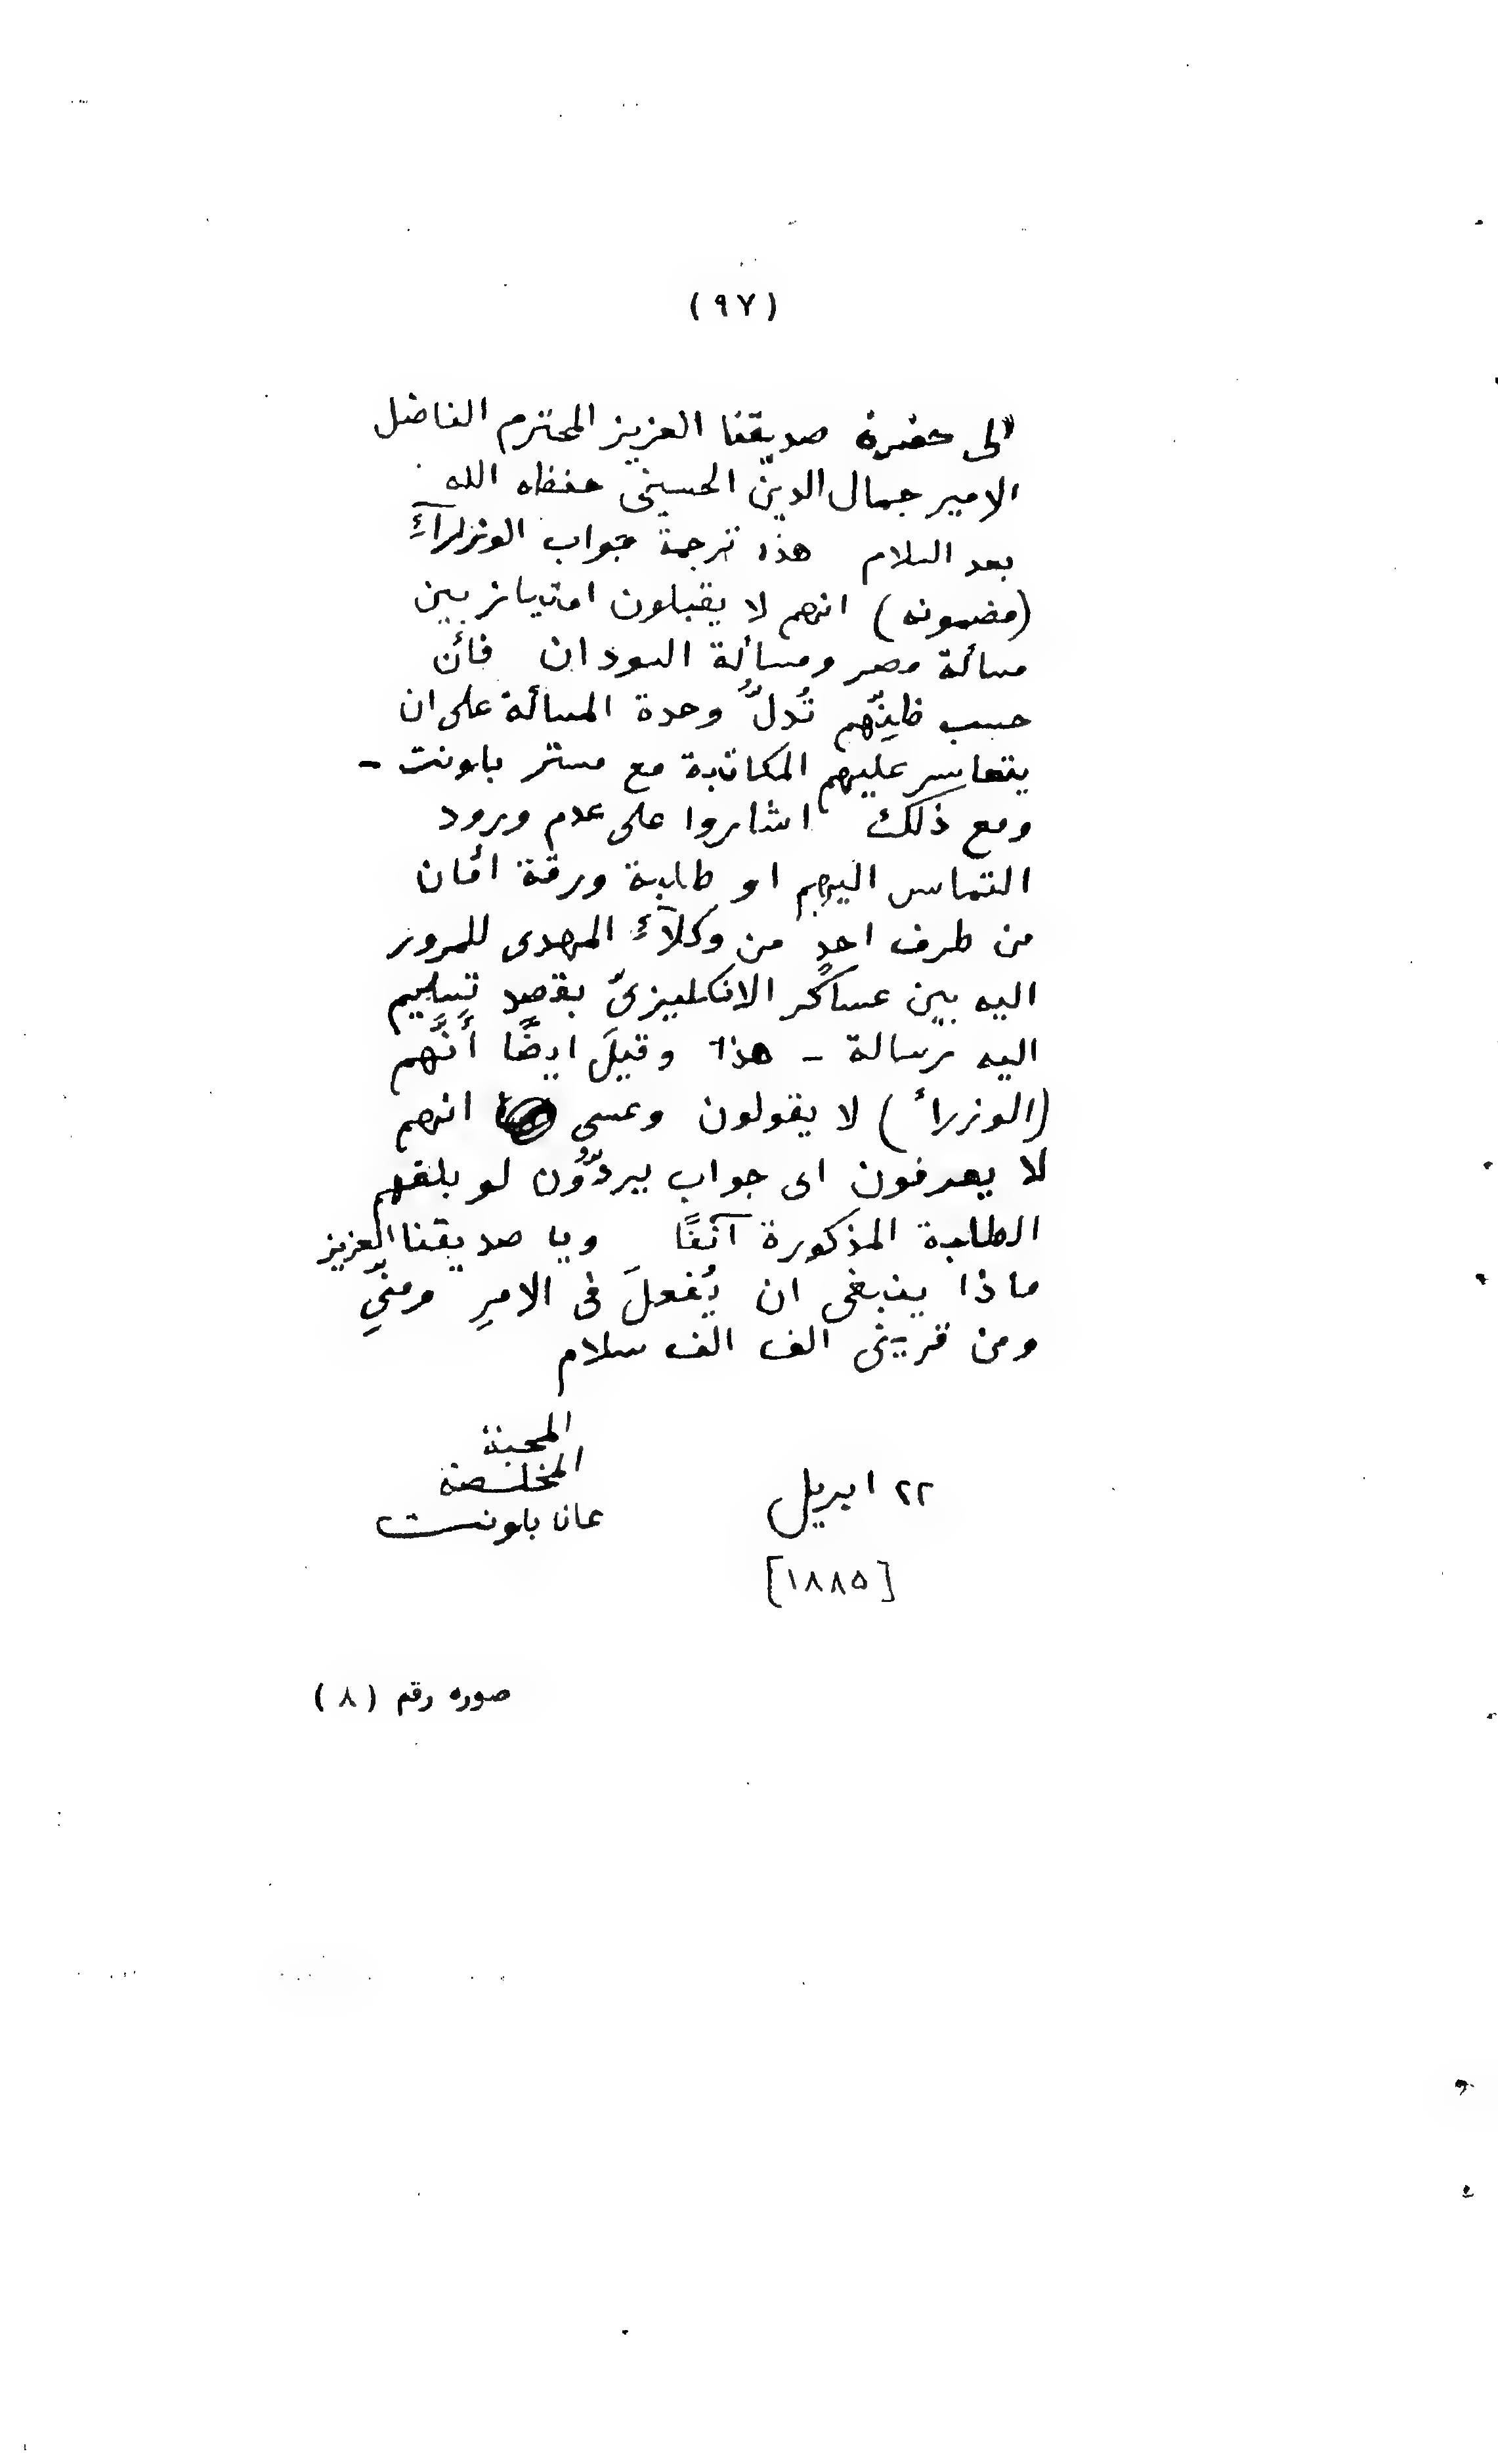 (٩٧)
الى حضرة صديقنا العزيز المحترم الفاضل
الامير جمال الدين الحسيني حفظه الله
بعد السلام هذه ترجمة جواب الوزرآءِ
(مضمونه) انهم لا يقبلون امتياز بين
مسألة مصر ومسألة السودان فأن
حسب ظنِّهم تُدلُّ وحدة المسألة على ان
يتعاسر عليهم المكاتبة مع مستر بلونت -
ومع ذلك اشاروا على عدم ورود
التماس اليهم او طلبة ورقة أمان
من طرف احدٍ من وكلآءِ المهدى للمرور
اليه بين عساكر الانكليزىّ بقصدِ تسليم
اليه رسالة - هذا وقيلَ ايضًا أنَّهم
(الوزراء) لا يقولون وعسى انهم
لا يعرفون اى جواب يردّوُن لو بلغهم
الطلبة المذكورة آنفًا ويا صديقنا العزيز
ماذا ينبغى ان يُفعلَ فى الامرِ ومنّىِ
ومن قرينى الف الف سلام
المحبة
المخلصة
عانا بلونت
٢٢ ابريل
[١٨٨٥]
صوره رقم (٨)